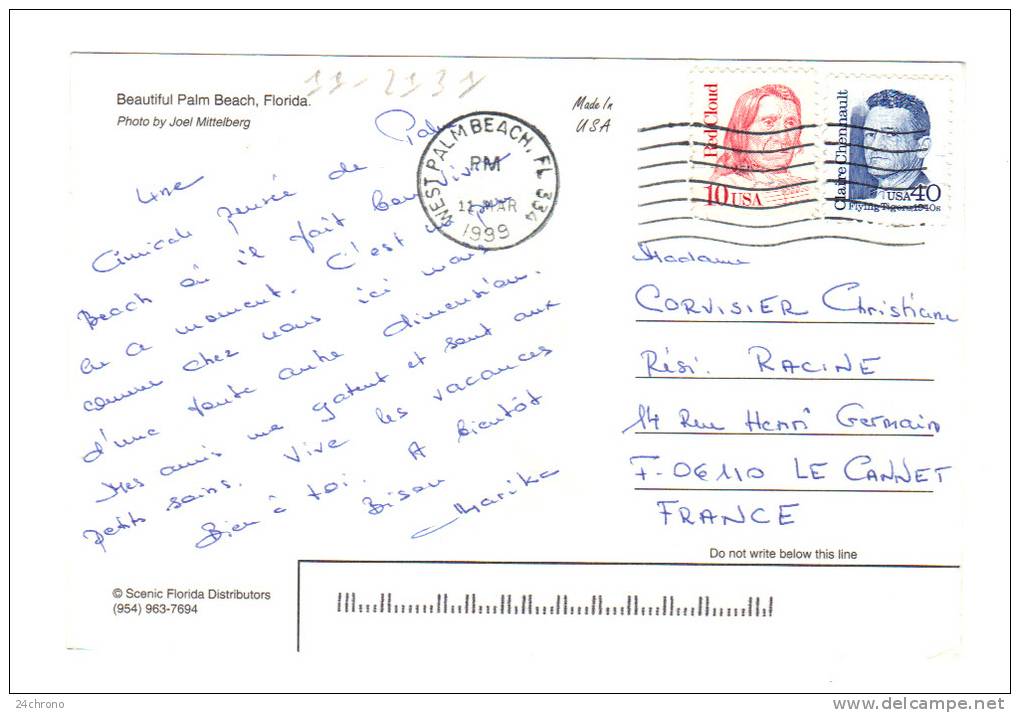 11-2131
Beautiful Palm Beach, Florida.
Photo by Joel Mittelberg
Made In
USA
WEST PALM BEACH, FL 334
PM
11 MAR
1999
Red Cloud
10 USA
Claire Chennault
USA 40
Flying Tigers 1940s
Une
amicale pensée de Palm
Beach où il fait bon vivre
en ce moment. C'est un peu
comme chez nous ici mais
d'une toute autre dimension.
Mes amis me gatent et sont aux
petits soins. Vive les vacances
Bien à toi. A bientôt
Bisou
Marika
Madame
CORVISIER Christiane
Rési. RACINE
14 Rue Henri Germain
F-06110 LE CANNET
FRANCE
Do not write below this line
© Scenic Florida Distributors
(954) 963-7694
24chrono
delcampe.net